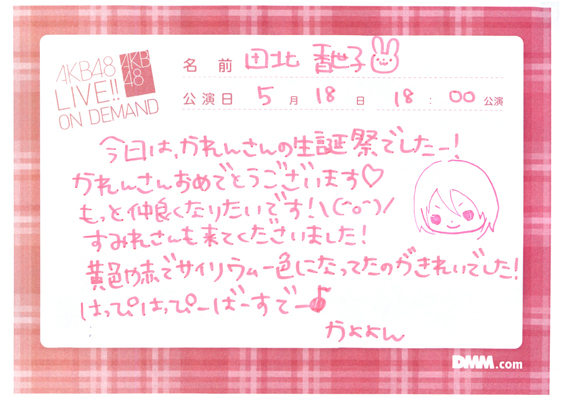 AKB48
LIVE!!
ON DEMAND
AKB
48
名前 田北 香世子
公演日 5月18日 18:00公演
今日は、かれんさんの生誕祭でしたー!
かれんさんおめでとうございます♡
もっと仲良くなりたいです!\(^o^)/
すみれさんも来てくださいました!
黄色や赤でサイリウム一色になってたのがきれいでした!
はっぴはっぴーばーすでー♪
かよよん
DMM.com